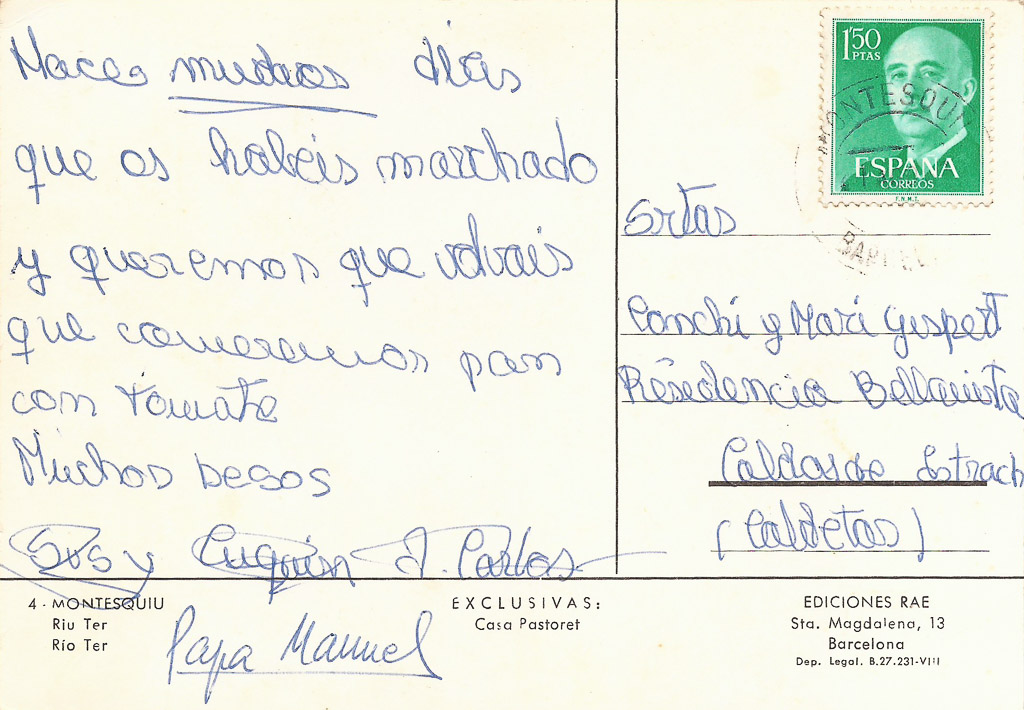 Hace muchos días
que os habéis marchado
y queremos que volvais
que comeremos pan
con tomate
Muchos besos
Susy Cuquin J. Carlos
Papa Manuel
1'50
PTAS
ESPAÑA
CORREOS
F.N.M.T.
MONTESQUIU
BARCEL
Srtas
Conchi y Mari Gispert
Residencia Bellavista
Caldas de Estrach
(Caldetas)
4 - MONTESQUIU
Riu Ter
Río Ter
EXCLUSIVAS:
Casa Pastoret
EDICIONES RAE
Sta. Magdalena, 13
Barcelona
Dep. Legal. B.27.231-VIII